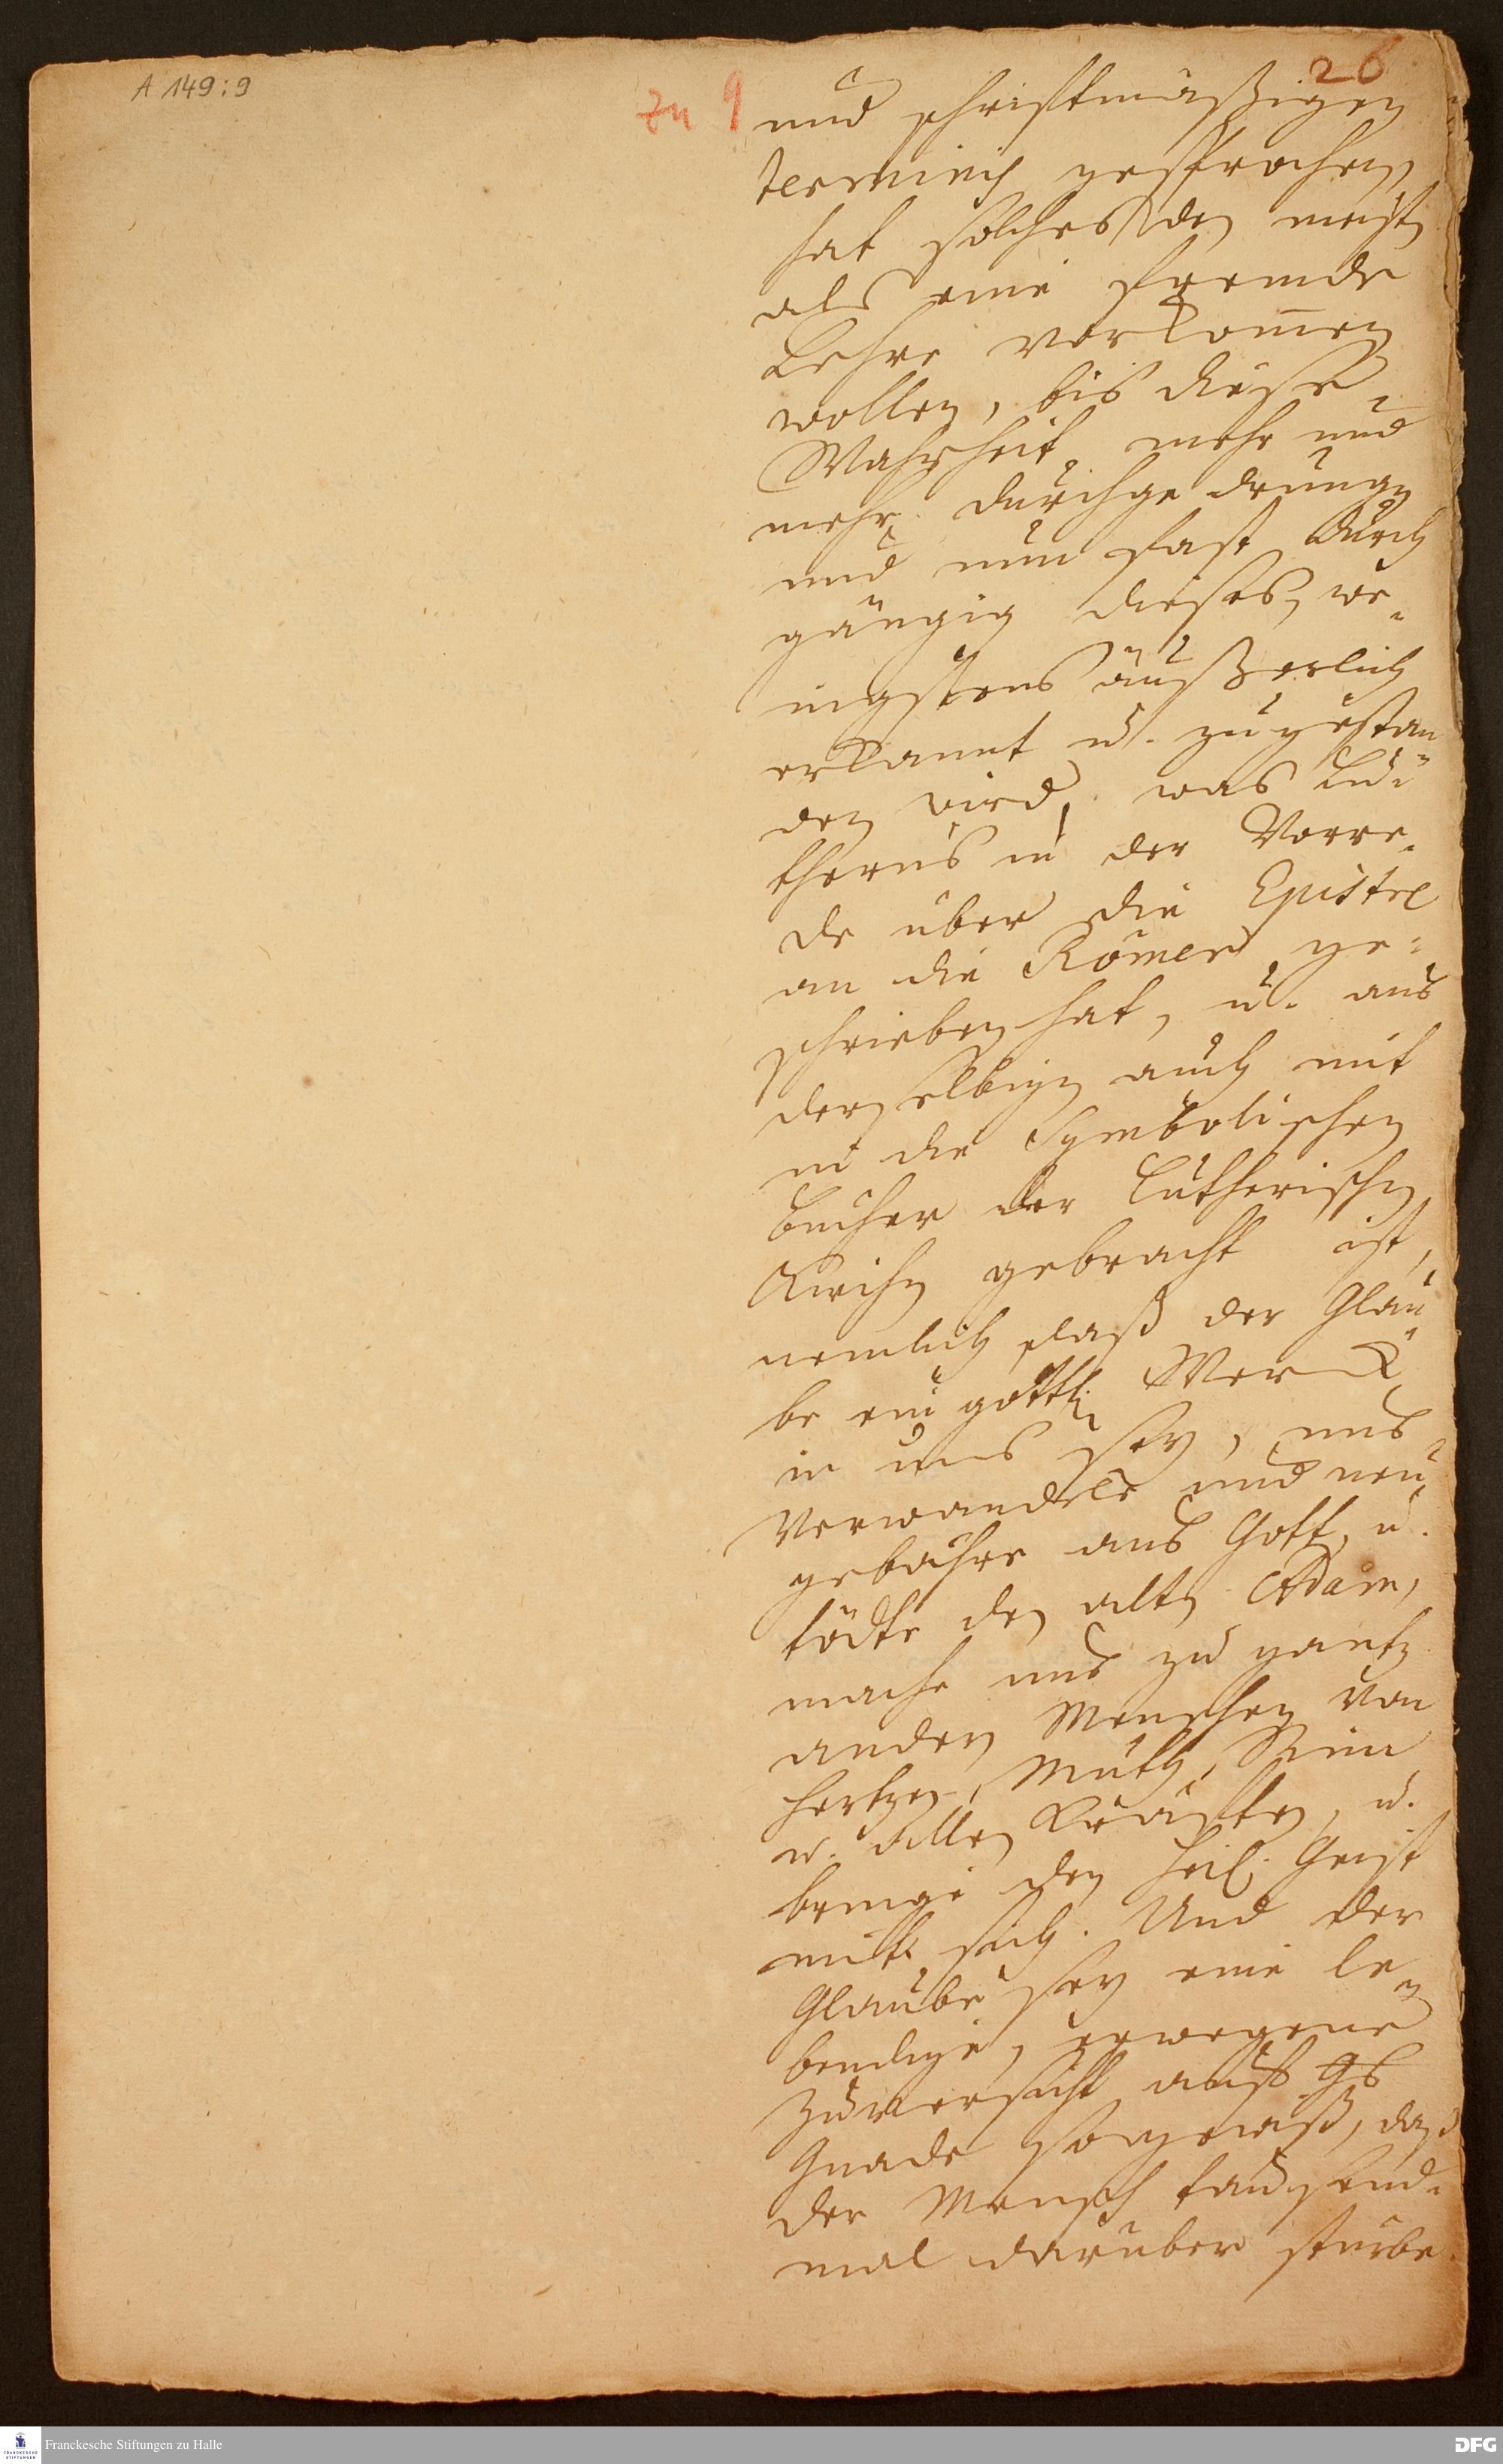 A 149:9
zu 9
26
und schriftmäßigen
terminis gesprochen,
hat solches den meisten
als eine fremde
Lehre vorkommen
wollen, bis diese
Wahrheit mehr und
mehr durchgedrungen
und nun fast durch
gängig dieses, we-
nigstens äußerlich
erkannt u. zugestan-
den wird, was Lu-
therus in der Vorre-
de über die Epistel
an die Römer ge-
schrieben hat, u. aus
derselbigen auch mit
in die Symbolischen
Bücher der Lutherischen
Kirchen gebracht ist,
nemlich daß der Glau-
be ein göttl. Werck
in uns sey, uns
verwandele und neu
gebähre aus Gott, u.
tödte den alten Adam,
mache uns zu gantz
andern Menschen von
Hertzen, Muth, Sinn
u. allen Kräfften, u.
bringe den Heil. Geist
mit sich. Und der
Glaube sey eine le-
bendige, erwegene
Zuversicht auf Gs
Gnade so gewiß, daß
der Mensch tausend-
mal darüber stürbe.
Franckesche Stiftungen zu Halle
DFG